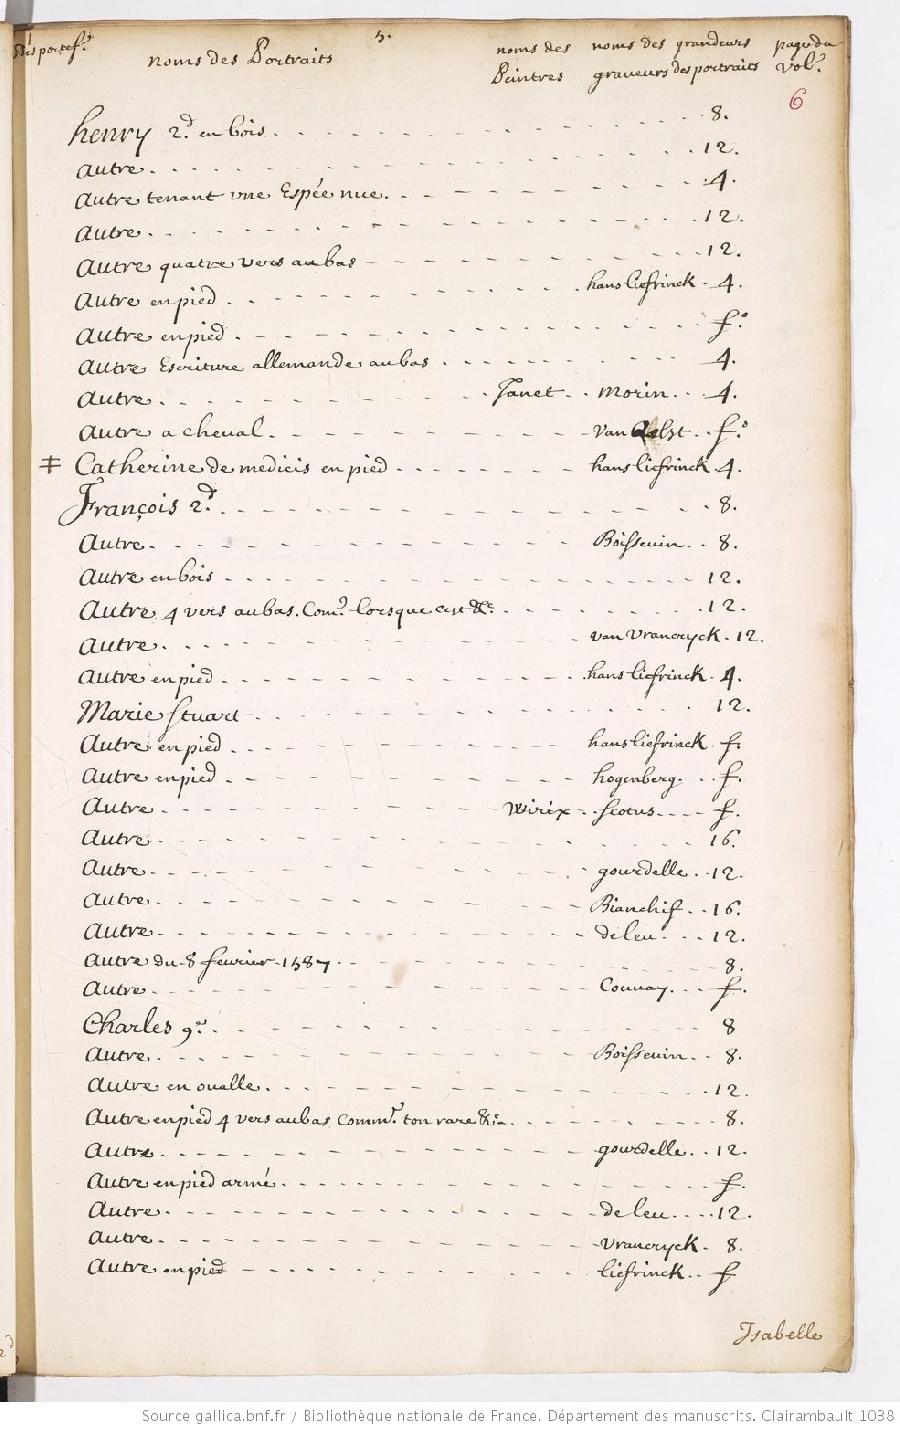 des portef.s
5.
noms des Portraits
noms des Peintres
noms des graveurs
grandeurs des portraits
page du vol.e
6
henry 2.d en bois. 8.
Autre. 12.
Autre tenant une Espée nue. 4.
Autre. 12.
Autre quatre vers au bas 12.
Autre en pied. hans liefrinck - 4.
Autre en pied. f.o
Autre Escriture allemande au bas. 4.
Autre. Janet. Morin. 4.
Autre a cheval. Van f.o
Catherine de medicis en pied. hans liefrinck 4.
François 2.d 8.
Autre. Boissevin. 8.
Autre en bois. 12.
Autre 4 vers au bas. Com.t Lorsque c'est &c. 12.
Autre. van vrancryck. 12.
Autre en pied. hans liefrinck. 4.
Marie Stuart. 12.
Autre en pied. hans liefrinck f.
Autre en pied. hogenberg. f.
Autre. Wirix. Scotus. f.
Autre. 16.
Autre. gourdelle. 12.
Autre. Bianchif. 16.
Autre. de leu. 12.
Autre du 8 fevrier 1587. 8.
Autre. Couvay. f.
Charles 9.e 8
Autre. Boissevin. 8.
Autre en ovalle. 12.
Autre en pied 4 vers au bas, Comm.t ton rare &ia. 8.
Autre. gourdelle. 12.
Autre en pied armé. f.
Autre. de leu. 12.
Autre. vrancryck. 8.
Autre en pied liefrinck. f
Isabelle
Source gallica.bnf.fr / Bibliothèque nationale de France. Département des manuscrits. Clairambault 1038